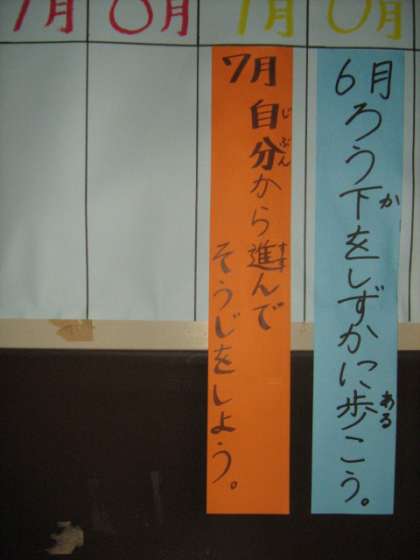 月
月
月
月
6月
ろう下をしずかに歩こう。
か
ある
7月
自分から進んで
じぶん
すす
そうじをしよう。